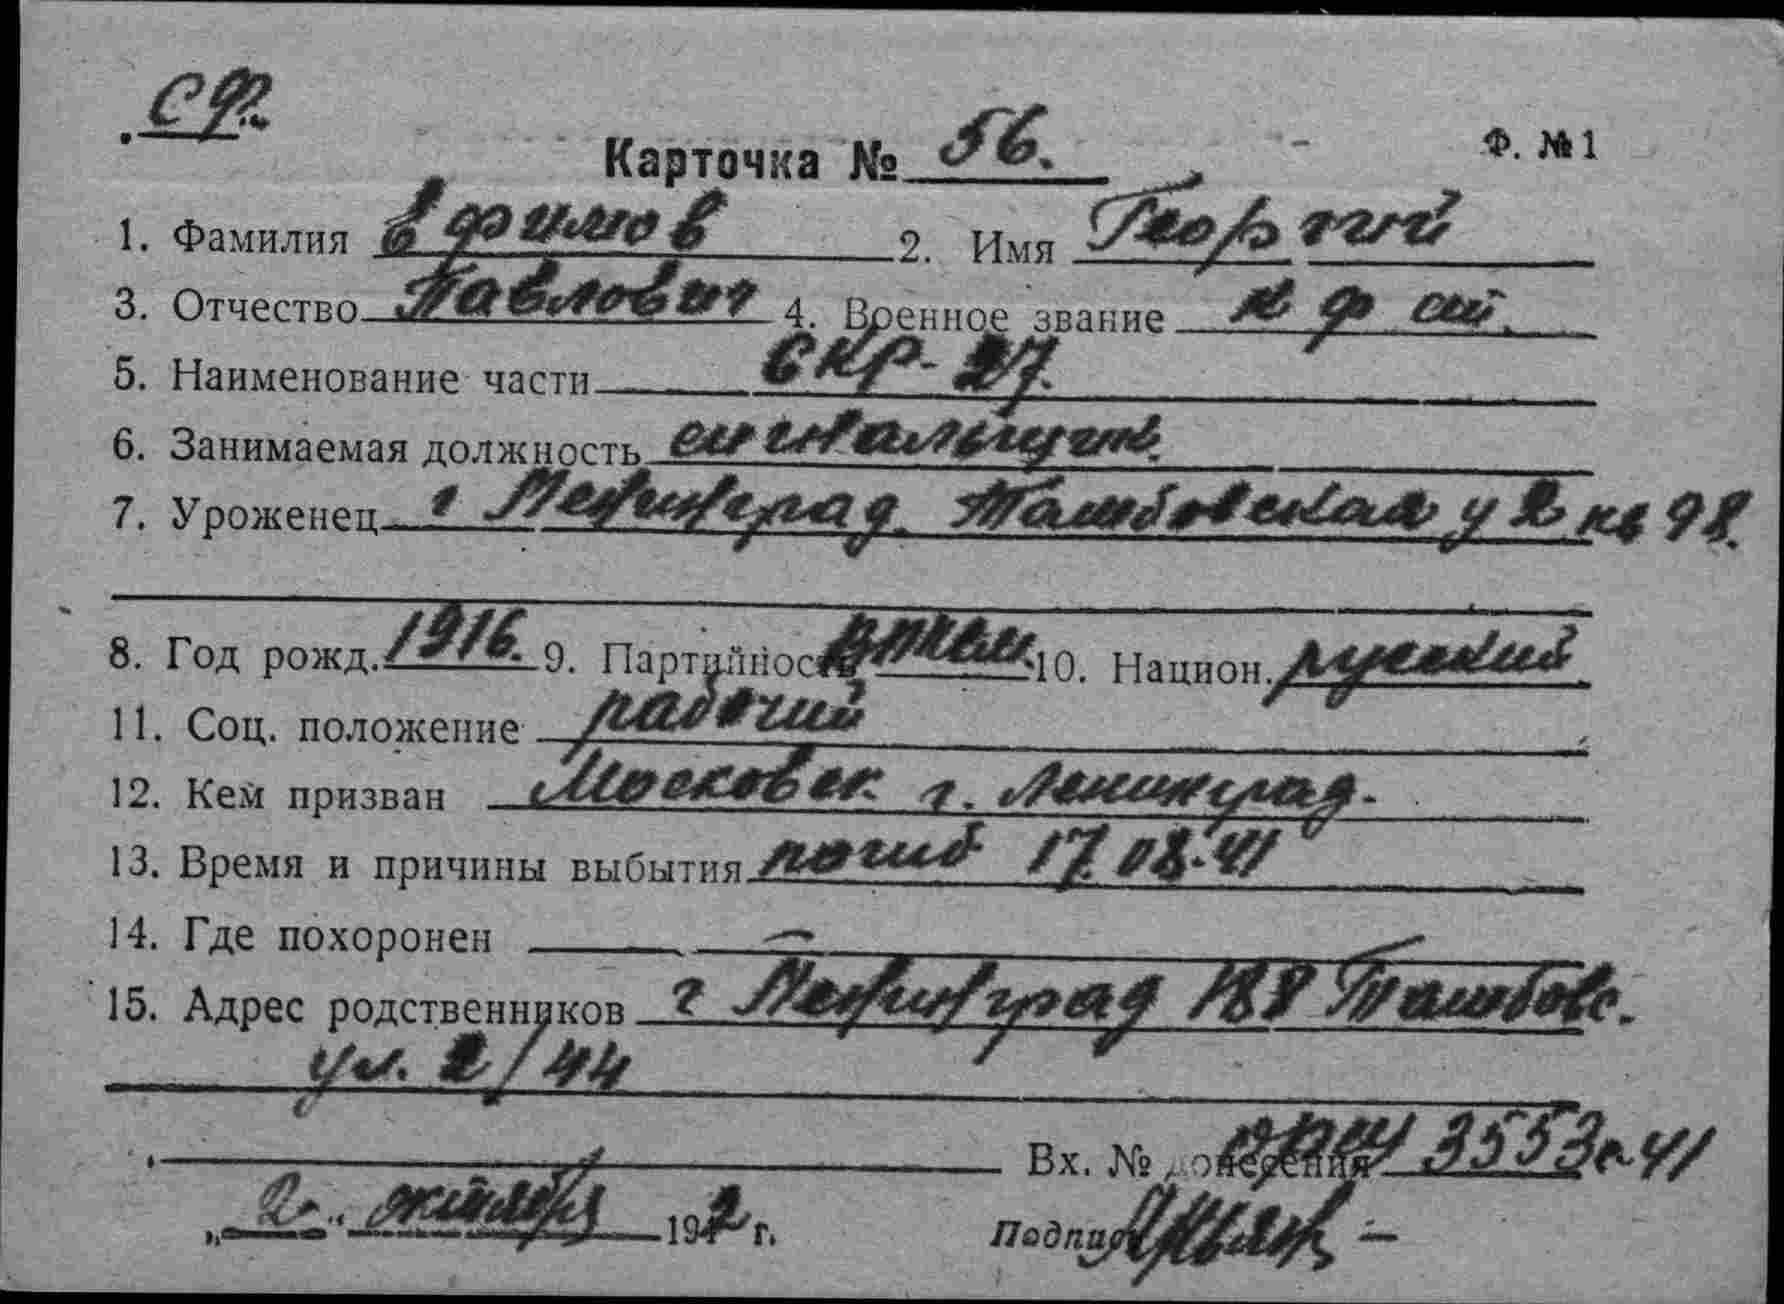 СФ.
Карточка № 56. Ф. № 1
1. Фамилия Ефимов 2. Имя Георгий
3. Отчество Павлович 4. Военное звание к ф сит.
5. Наименование части СКР-27.
6. Занимаемая должность сигнальщик.
7. Уроженец г Ленинград. Тамбовская у 2 кв 98.
8. Год рожд. 1916. 9. Партийность 10. Национ. русский
11. Соц. положение рабочий
12. Кем призван Московск. г. Ленинград.
13. Время и причины выбытия погиб 17.08.41
14. Где похоронен —
15. Адрес родственников г Ленинград 188 Тамбовс.
ул. 2/44
Вх. № донесения 3553с-41
„2“ октября 1942 г. Подпись